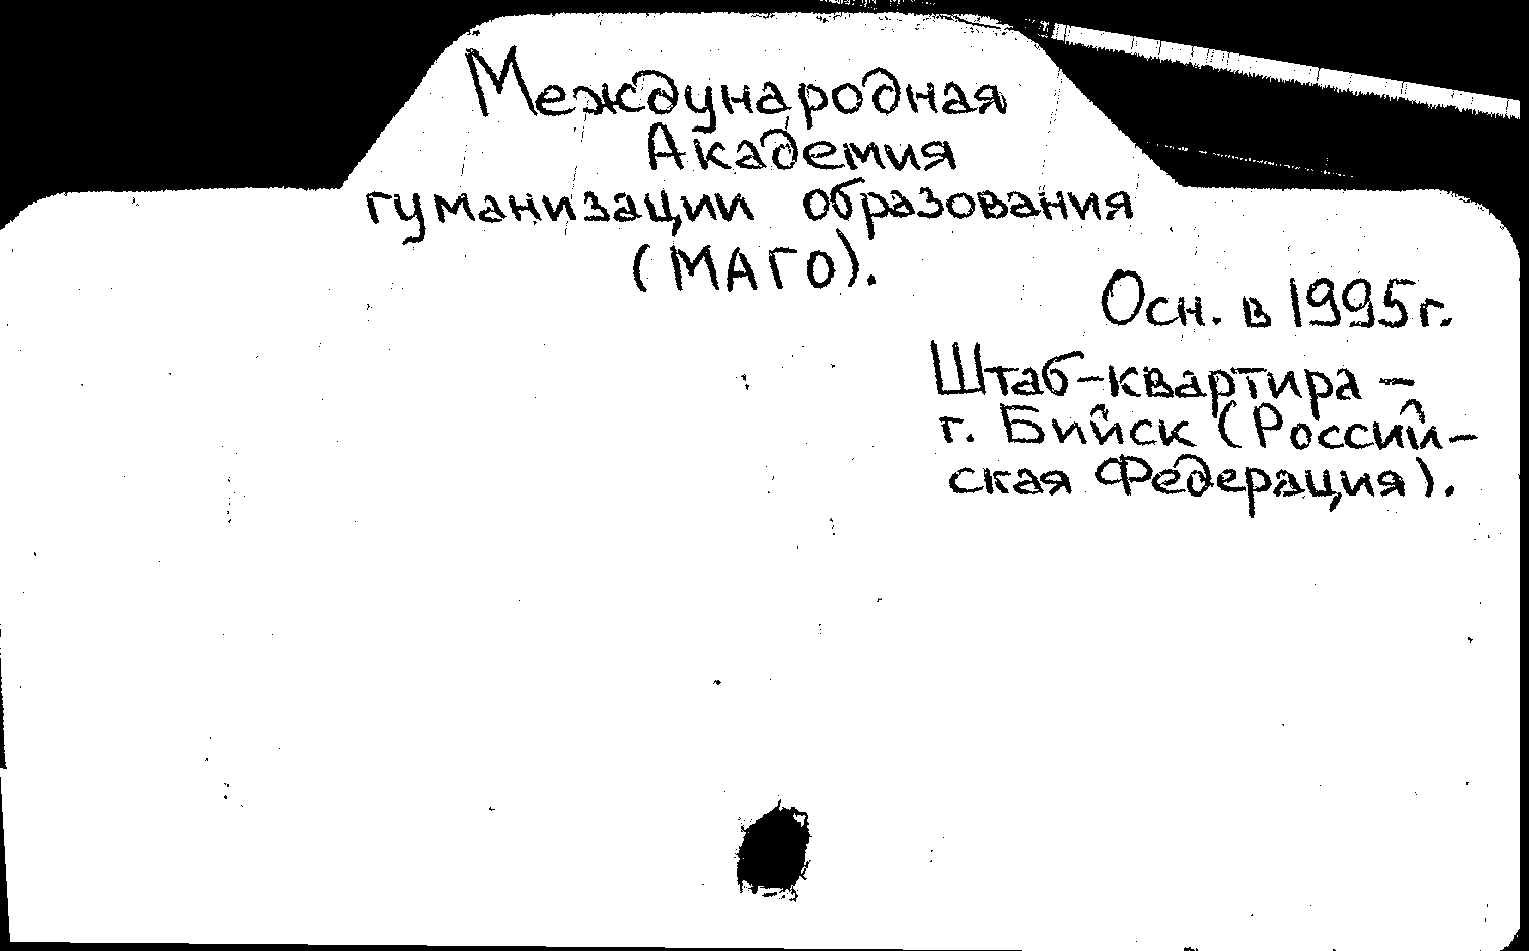 Международная
Академия
гуманизации образования
(МАГО).
Осн. в 1995г.
Штаб-квартира –
г. Бийск (Россий-
ская Федерация).